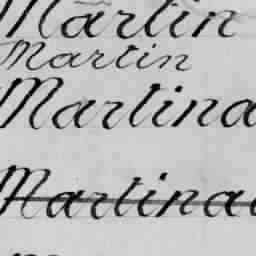 Martin
Martin
Martina
Martina